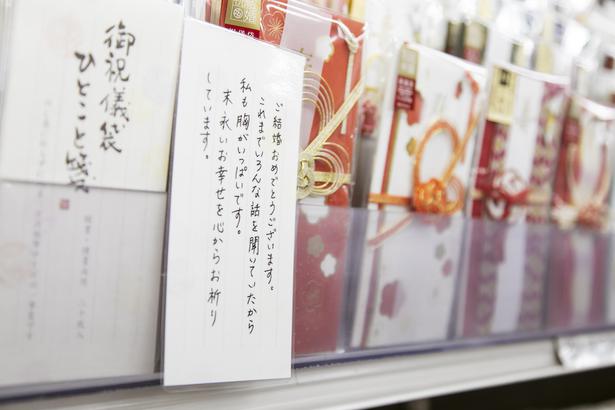 御祝儀袋
ひとこと箋
ご結婚おめでとうございます。
これまでいろんな話を聞いていたから
私も胸がいっぱいです。
末永いお幸せを心からお祈り
しています。